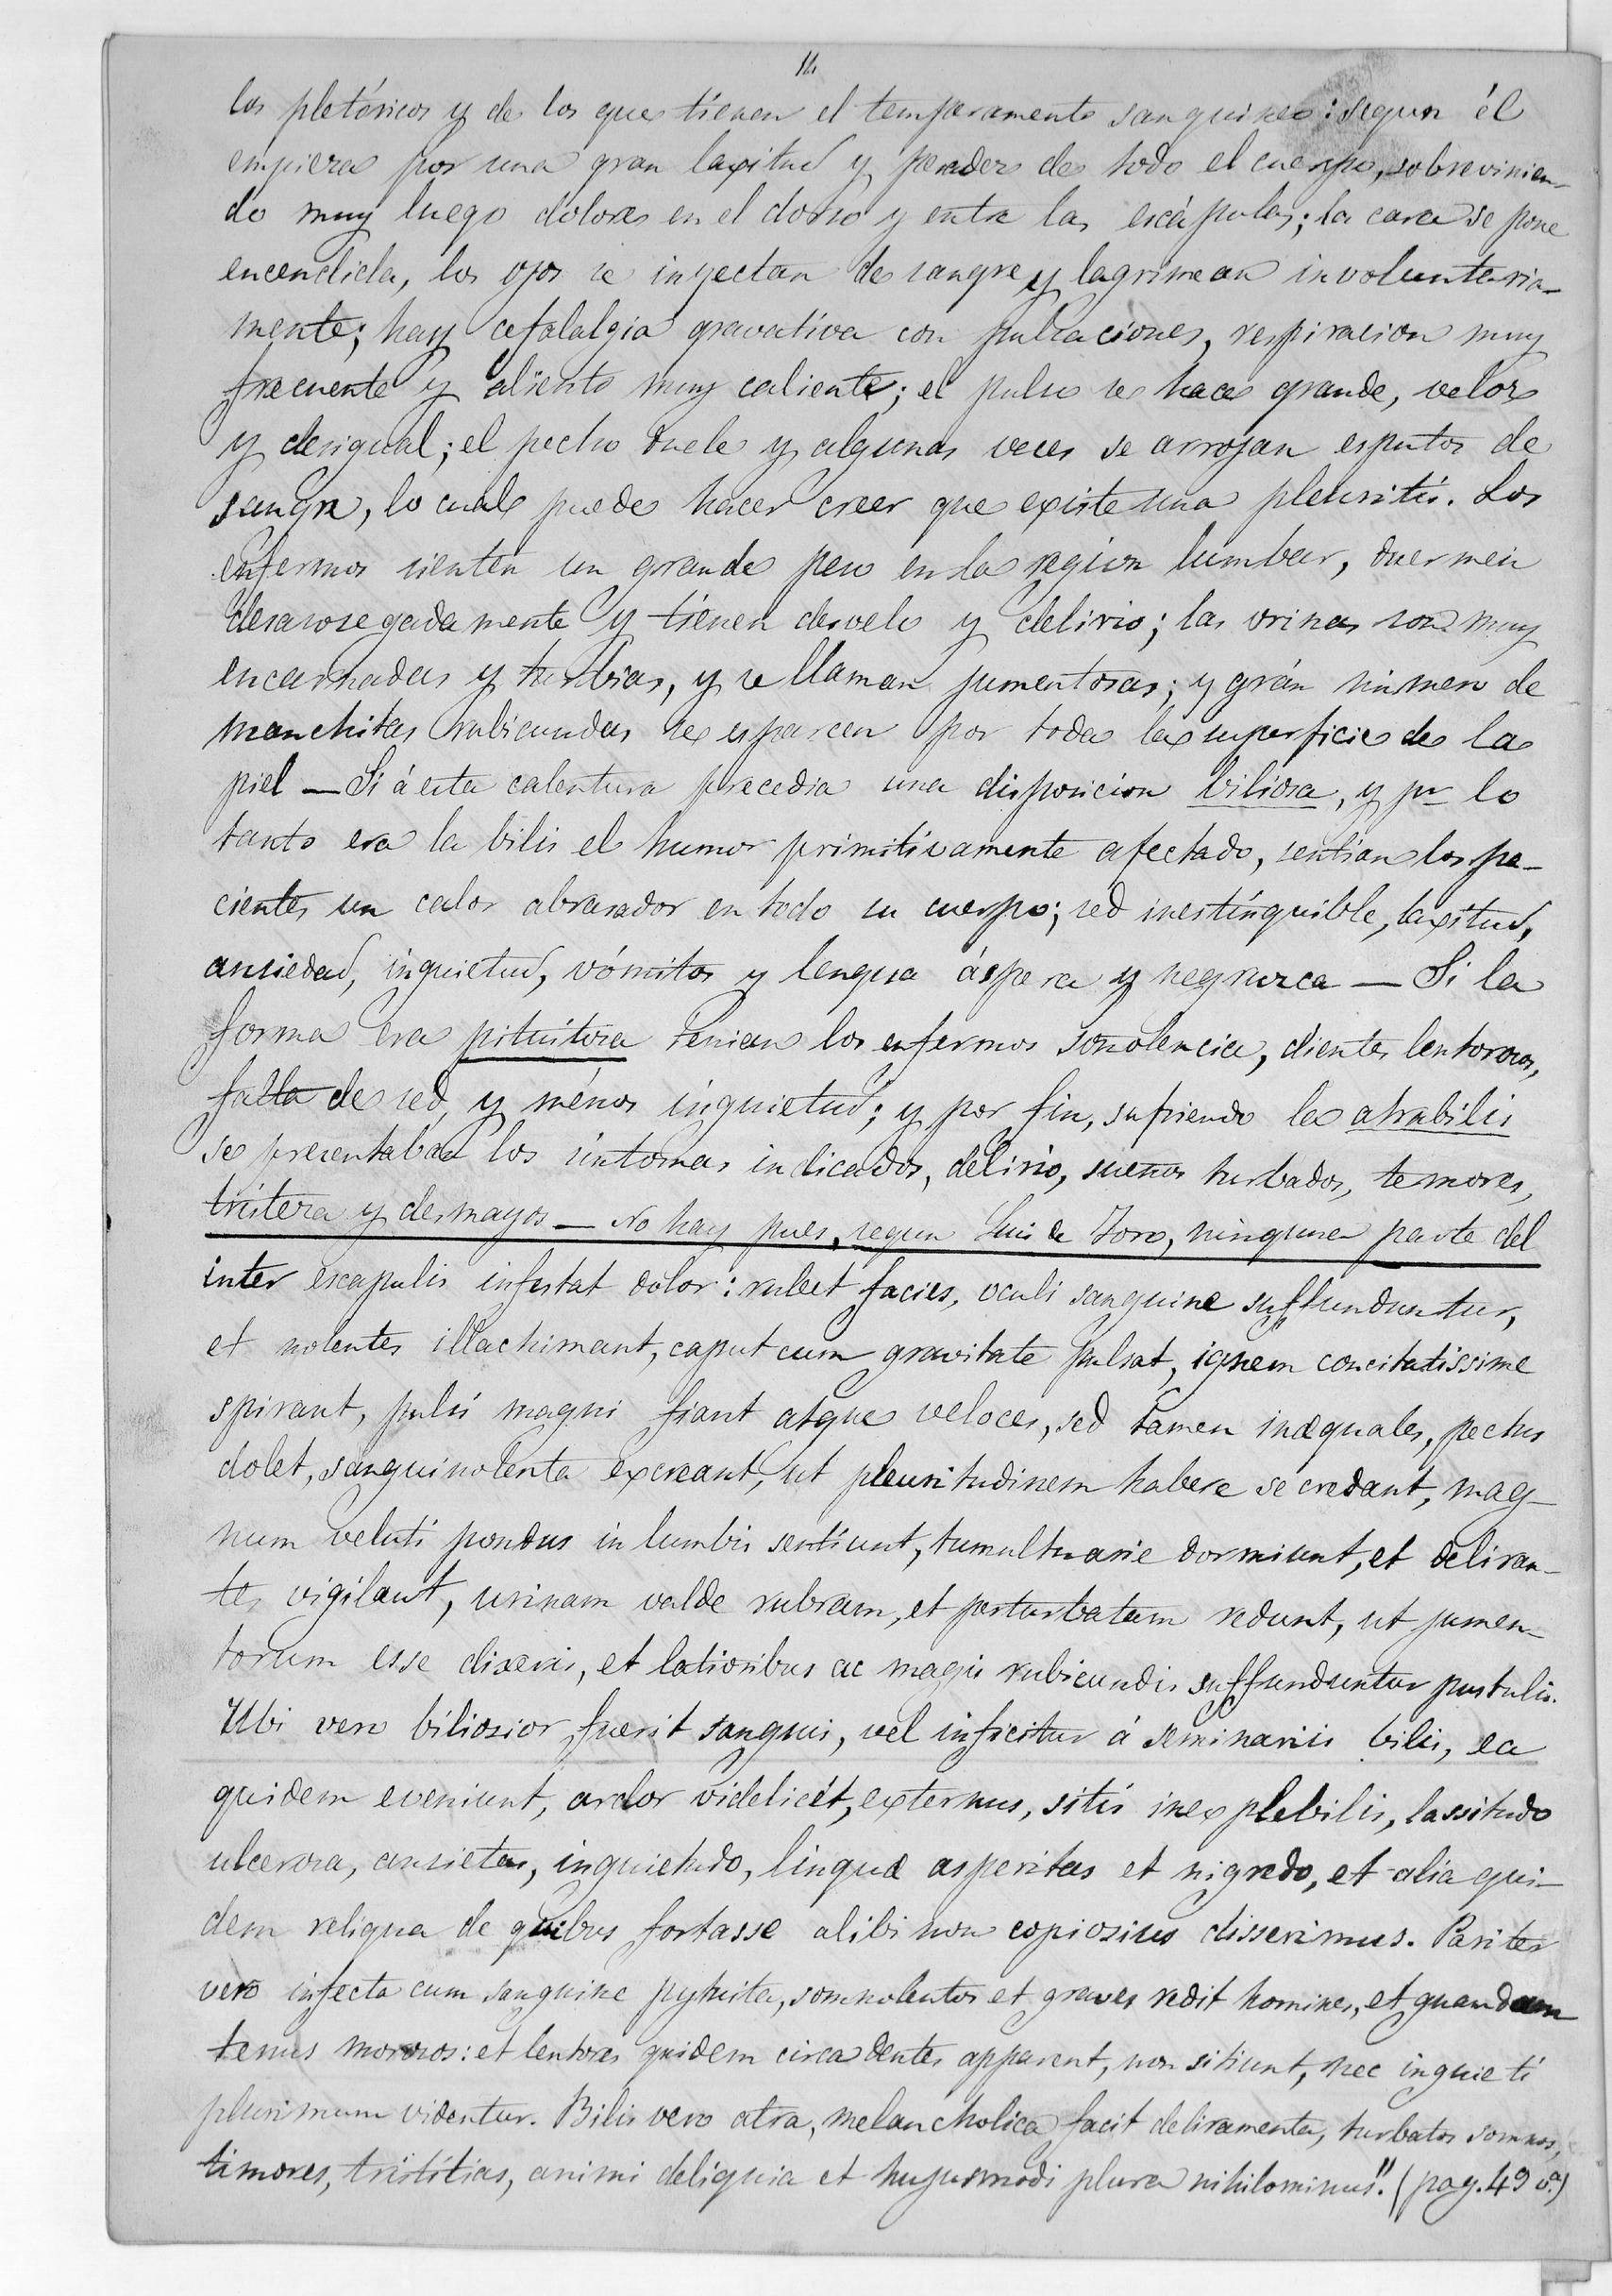 14
los pletóricos y de los que tienen el temperamento sanguineo: segun él
empieza por una gran laxitud y pesadez de todo el cuerpo, sobrevinien-
do muy luego dolores en el dorso y entre las escápulas; la cara se pone
encendida, los ojos se inyectan de sangre y lagrimean involuntaria-
mente; hay cefalalgia gravativa con pulsaciones, respiracion muy
frecuente y aliento muy caliente; el pulso se hace grande, veloz
y desigual; el pecho duele y algunas veces se arrojan esputos de
sangre, lo cual puede hacer creer que existe una pleuritis. Los
enfermos sienten un grande peso en la region lumbar, duermen
desasosegadamente y tienen desvelo y delirio; las orinas son muy
encarnadas y turbias, y se llaman jumentosas; y grán número de
manchitas rubicundas se esparcen por toda la superficie de la
piel — Si á esta calentura precedia una disposicion biliosa, y pr lo
tanto era la bilis el humor primitivamente afectado, sentian los pa-
cientes un calor abrasador en todo su cuerpo; sed inestínguible, laxitud,
ansiedad, inquietud, vómitos y lengua áspera y negruzca — Si la
forma era pituitosa tenian los enfermos sonolencia, dientes lentorosos,
falta de sed, y ménos inquietud; y por fin, sufriendo la atrabilis
se presentaban los síntomas indicados, delirio, sueños turbados, temores,
tristeza y desmayos — No hay pues, segun Luis de Toro, ninguna parte del
inter escapulis infestat dolor: rubet facies, oculi sanguine suffunduntur,
et nolentes illachimant, caput cum gravitate pulsat, ignem concitatissime
spirant, pulsi magni fiant atque veloces, sed tamen inæquales, pectus
dolet, sanguinolenta excreant, ut pleuritudinem habere se credant, mag-
num veluti pondus in lumbis sentiunt, tumultuarie dormiunt, et deliran-
tes vigilant, urinam valde rubram, et perturbatam redunt, ut jumen-
torum esse dixeris, et latioribus ac magis rubicundis suffunduntur pustulis.
Ubi vero biliosior fuerit sanguis, vel inficitur á seminariis bilis, ea
quidem eveniunt, ardor videlicét, externus, sitis inexplebilis, lassitudo
ulcerosa, ansietas, inquietudo, linguæ asperitas et nigredo, et alia qui-
dem reliqua de quibus fortasse alibi non copiosius disserimus. Pariter
vero infecta cum sanguine pytuita, somnolentos et graves redit homines, et quandam
tenus morosos: et lentores quidem circa dentes apparent, non sitiunt, nec inquieti
plurimum videntur. Bilis vero atra, melancholica facit deliramenta, turbatos somnos,
timores, tristitias, animi deliquia et hujusmodi plura nihilominus". (pag. 49 v.ª)